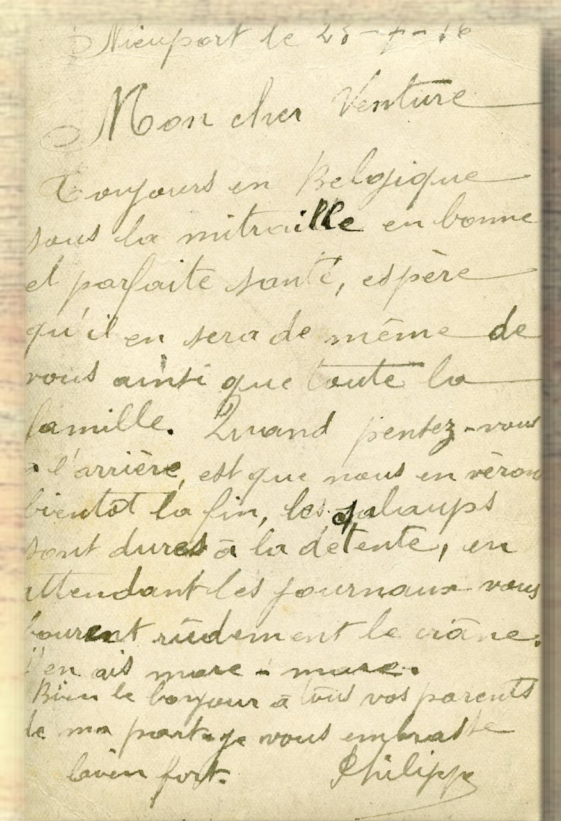 Nieuport le 25-7-16
Mon cher Venture
Toujours en Belgique
sous la mitraille en bonne
et parfaite santé, espère
qu'il en sera de même de
vous ainsi que toute la
famille. Quand pensez-vous
l'arrière, est que nous en véron
bientot la fin, les salaups
sont dures à la détente, en
attendant les journaux vous
bourent rudement le crâne.
J'en ais mare - mare.
Bien le bonjour à tous vos parents
de ma part je vous embrasse
bien fort. Philippe